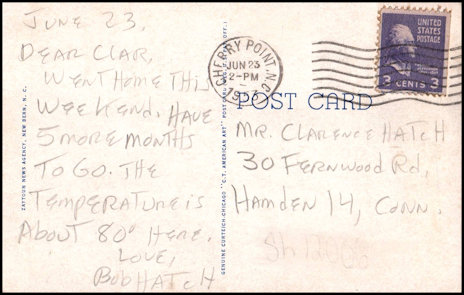 JUNE 23,
DEAR CLAR,
WENT HOME THIS
WEEKEND. HAVE
5 MORE MONTHS
TO GO. THE
TEMPERATURE IS
ABOUT 80° HERE.
LOVE,
BOB HATCH
ZAYTOUN NEWS AGENCY, NEW BERN, N. C.
GENUINE CURTEICH-CHICAGO "C.T. AMERICAN ART" POST CARD
CHERRY POINT, N.C.
JUN 23
2-PM
UNITED
STATES
POSTAGE
3 CENTS 3
POST CARD
MR. CLARENCE HATCH
30 FERNWOOD Rd,
HAMDEN 14, CONN.